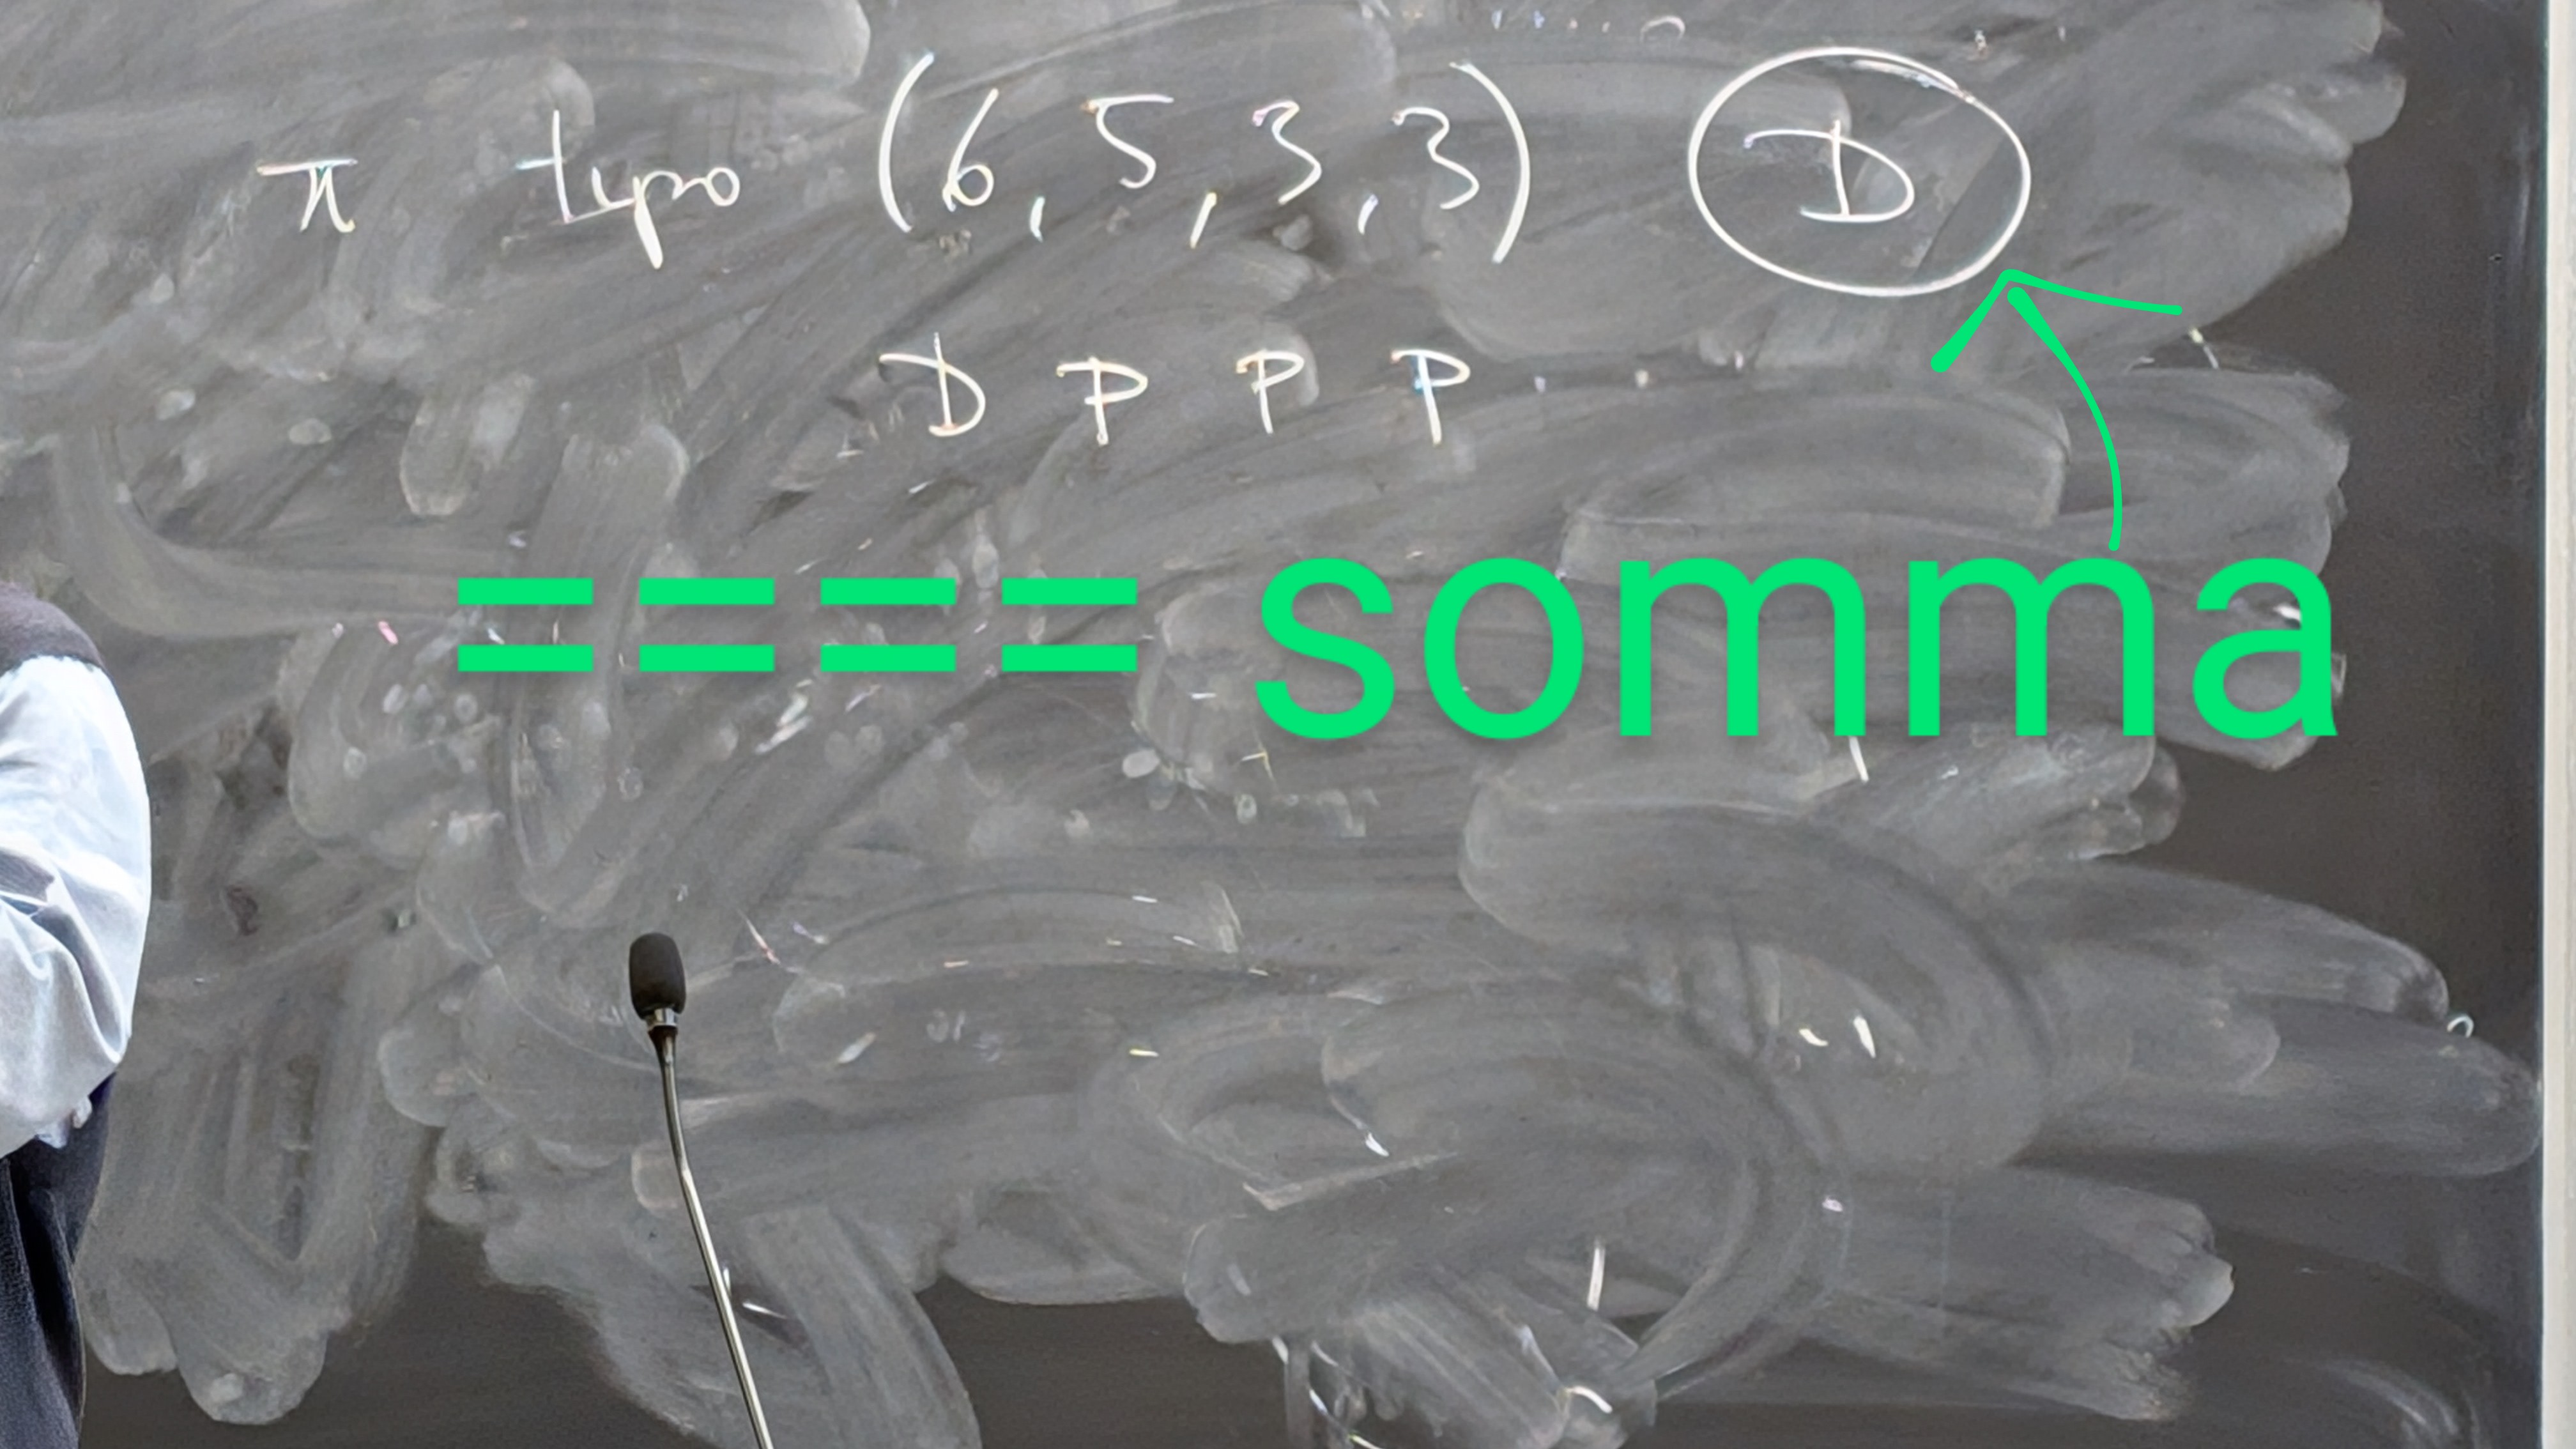 π tipo (6, 5, 3, 3) D
D P P P
==== somma